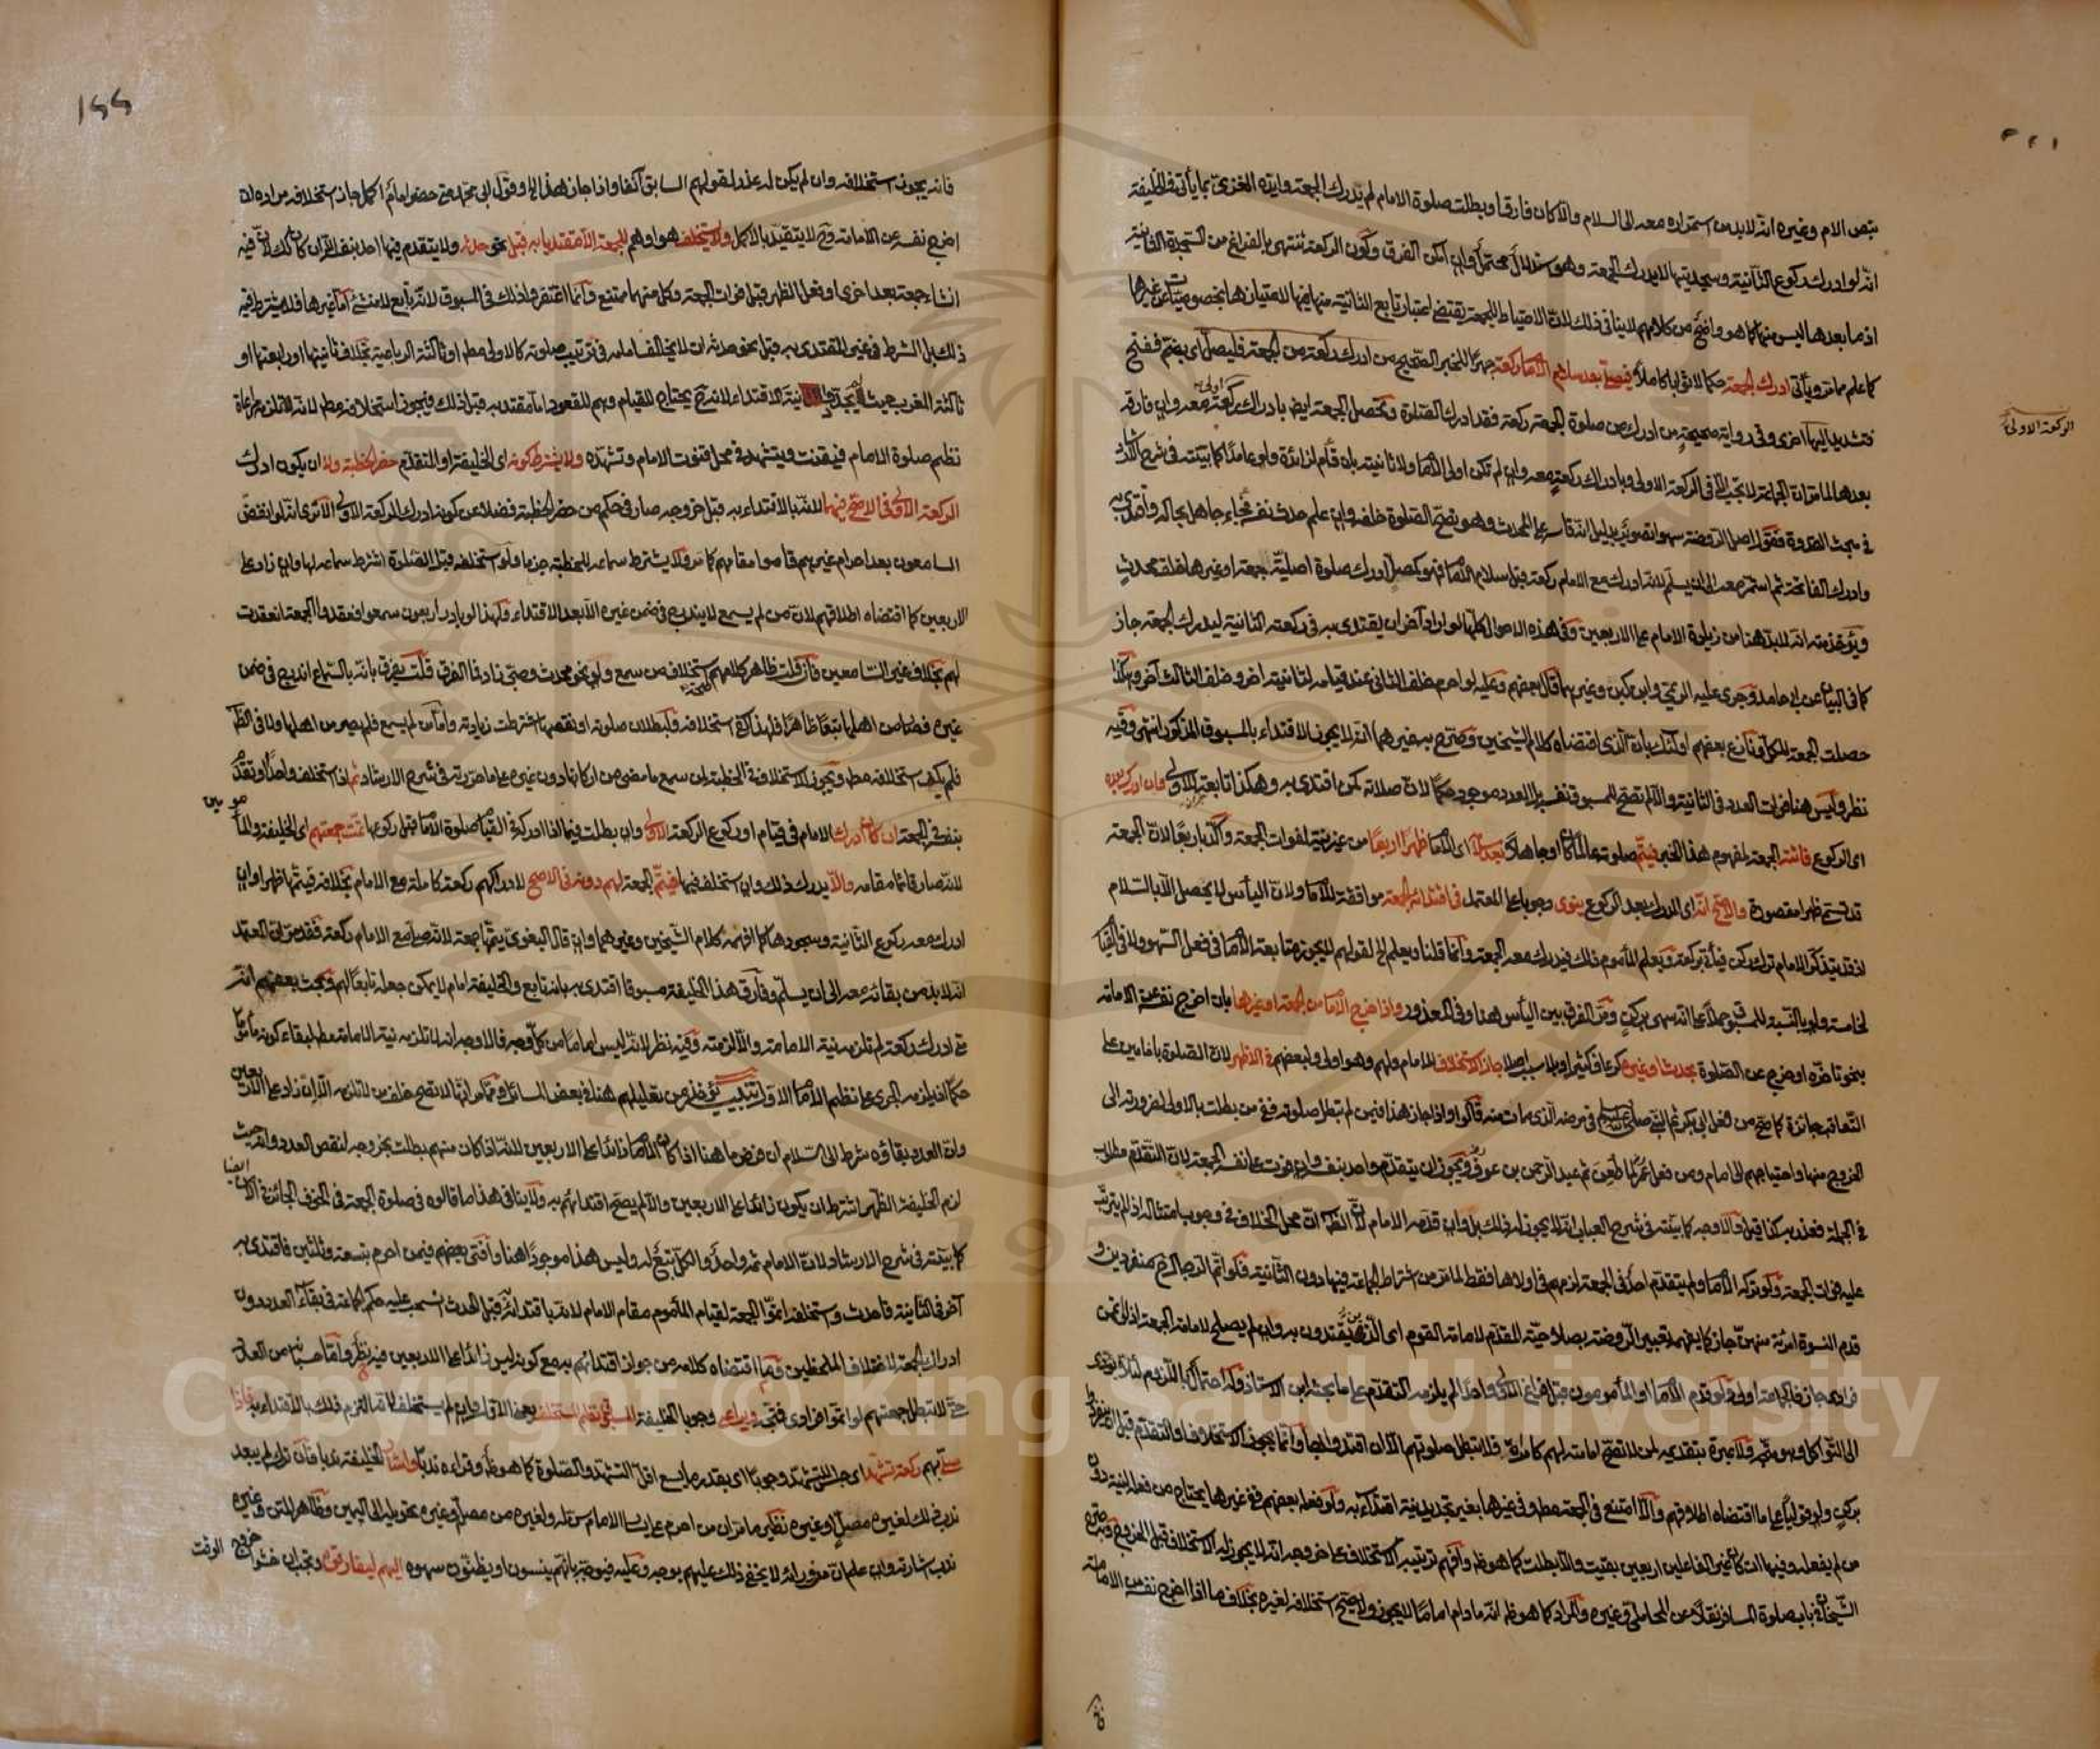 بنص الام وغيره انه لابد من استمراره معه الى السلام والا كان فارقا وبطلت صلوة الامام لم يدرك الجمعة وايده الغزي بما يأتي في الخليفة
انه لو ادرك ركوع الثانية وسجدتيها لا يدرك الجمعة وهو استدلال محتمل وان امكن الفرق وكون الركعة تنتهي بالفراغ من السجدة الثانية
اذ ما بعدها ليس منها كما هو واضح من كلامهم لا ينافي ذلك لان الاحتياط للجمعة يقتضي اعتبار تابع الثانية منها فيها لامتيازها بخصوصيات عن غيرها
كما علم مما مر ويأتي ادرك الجمعة حكما لا ثوابا كاملا فيصلي بعد سلام الامام ركعة جهرا للخبر الصحيح من ادرك ركعة من الجمعة فليصل اي بضم ففتح
فتشديد اليها اخرى وفي رواية صحيحة من ادرك من صلوة الجمعة ركعة فقد ادرك الصلوة وتحصل الجمعة ايضا بادراك ركعة اولى معه وان فارقه
بعدها لما مر ان الجماعة لا تجب الا في الركعة الاولى وبادراك ركعة معه وان لم تكن اولى الامام ولا ثانيته بان قام لزائدة ولو عامدا كما بينته في شرح الارشاد
في مبحث القدوة فقول اصل الروضة سهوا تصوير بدليل انه قاسه على المحدث وهو تصح الصلوة خلفه وان علم حدث نفسه فجاء جاهل بحاله واقتدى به
وادرك الفاتحة ثم استمر معه الى ان يسلم لانه ادرك مع الامام ركعة قبل سلام الامام فهو كمصل ادرك صلوة اصلية جمعة او غيرها خلف محدث
ويؤخذ منه انه لا بد هنا من زيادة الامام على الاربعين وفي هذه الاحوال كلها لو اراد آخر ان يقتدي به في ركعته الثانية ليدرك الجمعة جاز
كما في البيان عن ابي حامد وجرى عليه الريمي وابن كبن وغيرهما قال بعضهم وعليه لو احرم خلف الثاني عند قيامه لثانيته آخر وخلف الثالث آخر وهكذا
حصلت الجمعة للكل ونازع بعضهم اولئك بان الذي اقتضاه كلام الشيخين وصرح به غيرهما انه لا يجوز الاقتداء بالمسبوق المذكور انتهى وفيه
نظر وليس هنا فوات العدد في الثانية والا لم تصح للمسبوق نفسه بل العدد موجود حكما لان صلاته كمن اقتدى به وهكذا تابعة للاولى وان ادركه بعده
اي الركوع فاتته الجمعة لمفهوم هذا الخبر فيتم صلوته عالما كان او جاهلا بعد سلامه اي الامام ظهرا اربعا من غير نية لفوات الجمعة واكد باربعا لان الجمعة
قد تسمى ظهرا مقصورة والاصح انه اي المدرك بعد الركوع ينوي وجوبا على المعتمد في اقتدائه الجمعة موافقة للامام ولان اليأس لا يحصل الا بالسلام
اذ قد يتذكر الامام ترك ركن فيأتي بركعة ويعلم المأموم ذلك فيدرك معه الجمعة وانما قلنا ويعلم الخ لقولهم لا يجوز متابعة الامام في فعل السهو ولا في القيام
لخامسة ولو بالنسبة للمسبوق حملا على انه سهى بركن ومر الفرق بين اليأس هنا وفي المعذور واذا خرج الامام من الجمعة او غيرها بان اخرج نفسه عن الامامة
بنحو تأخره او خرج عن الصلوة بحدث او غيره كرعاف كثير او بلا سبب اصلا جاز الاستخلاف للامام ولهم وهو اولى ولبعضهم في الاظهر لان الصلوة بامامين على
التعاقب جائزة كما صح من فعل ابي بكر ثم النبي صلى الله عليه وسلم في مرضه الذي مات منه قالوا واذا جاز هذا فيمن لم تبطل صلوته ففي من بطلت بالاولى لضرورته الى
الخروج منها واحتياجهم الى امام ومن فعل عمر لما طعن ثم عبد الرحمن بن عوف ويجوز ان يتقدم واحد بنفسه وان فوت على نفسه الجمعة لان التقدم مطلوب
في الجملة فعذر به كذا قيل والاوجه كما بينته في شرح العباب انه لا يجوز له ذلك بل وان قدمه الامام لان الظاهر ان محل الخلاف في وجوب امتثاله اذا لم يترتب
عليه فوات الجمعة ولو تركه الامام ولم يتقدم احد في الجمعة لزمهم في اولاها فقط لما مر من اشتراط الجماعة فيها دون الثانية فلو اتم الرجال ح منفردين و
قدم النسوة امرأة منهن جاز كما يفهمه تعبير الروضة بصلاحية المقدم لامامة القوم اي الذين يقتدون به وان لم يصلح لامامة الجمعة اذ للاتمن
فرادى جاز فالجماعة اولى ولو قدم الامام او المأمومون قبل فراغ الاولى واحدا لم يلزمه التقدم على ما بحثه ابن الاستاذ وله احتمال باللزوم لئلا يؤدي
الى التواكل وهو متجه ولا عبرة بتقديمه لمن لا تصح امامته لهم كامرأة فلا تبطل صلوتهم الا ان اقتدوا بها وانما يجوز الاستخلاف او التقدم قبل ان ينفردوا
بركن ولو قوليا على ما اقتضاه اطلاقهم والا امتنع في الجمعة مطلقا وفي غيرها بغير تجديد نية اقتداء به ولو فعله بعضهم ففي غيرها يحتاج من فعله لنية دون
من لم يفعله وفيها ان كان غير الفاعلين اربعين بقيت والا بطلت كما هو ظاهر وافهم ترتيبه الاستخلاف على خروجه انه لا يجوز له الاستخلاف قبل الخروج وبه صرح
الشيخان في باب صلوة المسافر نقلا عن المحاملي وغيره والمراد كما هو ظاهر انه ما دام اماما لا يجوز ولا يصح استخلافه لغيره بخلاف ما اذا اخرج نفسه من الامامة
الركعة الاولى
فانه
١٢٢
فانه يجوز استخلافه وان لم يكن له عذر لقولهم السابق آنفا واذا جاز هذا الخ وقول ابي محمد متى حضر امام اكمل جاز استخلافه مراده ان
اخرج نفسه عن الامامة وح لا يتقيد بالاكمل ولا يستخلف هو او هم للجمعة الا مقتديا به قبل نحو حدثه ولا يتقدم فيها احد بنفسه الا ان كان كذلك لان فيه
انشاء جمعة بعد اخرى او فعل الظهر قبل فوات الجمعة وكل منهما ممتنع وانما اغتفروا ذلك في المسبوق لانه تابع لا منشئ اما غيرها فلا يشترط فيه
ذلك بل الشرط في غير المقتدى به قبل نحو حدثه ان لا يخالف امامه في ترتيب صلوته كالاولى مطلقا او ثالثة الرباعية بخلاف ثانيتها او رابعتها او
ثالثة المغرب حيث لم يجددوا نية الاقتداء لانه ح يحتاج للقيام وهم للقعود اما مقتد به قبل ذلك فيجوز استخلافه مطلقا لانه لالتزامه مراعاة
نظم صلوة الامام فيقنت ويتشهد في محل قنوت الامام وتشهده ولا يشترط كونه اي الخليفة او المتقدم حضر الخطبة ولا ان يكون ادرك
الركعة الاولى في الاصح فيهما لانه بالاقتداء به قبل خروجه صار في حكم من حضر الخطبة فضلا عن كونه ادرك الركعة الاولى الا ترى انه لو انفض
السامعون بعد احرام غيرهم قاموا مقامهم كما مر ولا يشترط سماعه للخطبة جزما ولو استخلفه قبل الصلوة اشترط سماعه لها وان زاد على
الاربعين كما اقتضاه اطلاقهم لان من لم يسمع لا يندرج في ضمن غيره الا بعد الاقتداء ولهذا لو بادر اربعون سمعوا فعقدوا الجمعة انعقدت
لهم بخلاف غير السامعين فان قلت ظاهر كلامهم صحة استخلاف من سمع ولو نحو محدث وصبي زاد فما الفرق قلت يفرق بانه بالسماع اندرج في ضمن
غيره فصار من اهلها تبعا ظاهرا فلهذا كره استخلافه ولبطلان صلوته او نقصها اشترطت زيادته واما من لم يسمع فلم يصر من اهلها ولا في الظاهر
فلم يكف استخلافه مطلقا ويجوز الاستخلاف في الخطبة لمن سمع ما مضى من اركانها دون غيره على ما حررته في شرح الارشاد ثم اذا استخلف واحد او تقدم
بنفسه في الجمعة ان كان ادرك الامام في قيام او ركوع الركعة الاولى وان بطلت فيما اذا ادركه في القيام صلوة الامام قبل ركوعها تمت جمعتهم اي الخليفة والمأمومين
لانه صار قائما مقامه والا يدرك ذلك وان استخلف فيها فيتم الجمعة لهم دونه في الاصح لادراكهم ركعة كاملة مع الامام بخلافه فيتمها ظهرا وان
ادرك معه ركوع الثانية وسجودها كما افهمه كلام الشيخين وغيرهما وان قال البغوي يتمها جمعة لانه صلى مع الامام ركعة فقد مر ان المعتمد
انه لا بد من بقائه معه الى ان يسلم وفارق هذا الخليفة مسبوقا اقتدى به بانه تابع والخليفة امام لا يمكن جعله تابعا لهم وبحث بعضهم انه
متى ادرك ركعة لم تلزمه نية الامامة والا لزمته وفيه نظر لانه ليس اماما من كل وجه فالاوجه انه لا تلزمه نية الامامة مطلقا لبقاء كونه مأموما
حكما اذ يلزمه الجري على نظم الامام الاول تنبيه يؤخذ من تعليلهم هنا في بعض المسائل ومما مر انها لا تصح خلف من لا تلزمه الا ان زاد على الاربعين
وان العدد بقاؤه شرط الى السلام ان فرض ما هنا اذا كان الامام زائدا على الاربعين لانه اذا كان منهم بطلت بخروجه لنقص العدد وانه حيث
لزم الخليفة الظهر اشترط ان يكون زائدا على الاربعين والا لم يصح اقتدائهم به ولا ينافي هذا ما قالوه في صلوة الجمعة في الخوف الجائزة في الامن ايضا
كما بينته في شرح الارشاد لان الامام ثم واحد والكل تبع له وليس هذا موجودا هنا وافتى بعضهم فيمن احرم بتسعة وثلثين فاقتدى به
آخر في الثانية فاحدث واستخلفه اتموا الجمعة لقيام المأموم مقام الامام لانه باقتدائه به قبل الحدث انسحب عليه حكم الجماعة في بقاء العدد دون
ادراك الجمعة لاختلاف الملحظين وما اقتضاه كلامه من جواز اقتدائهم به مع كونه ليس زائدا على الاربعين فيه نظر واما حسبانه من العدد
حتى لا تبطل جمعتهم لو اتموا فرادى فمتجه ويراعي وجوبا الخليفة المسبوق نظم المستخلف يعني الاول وان لم يستخلف لانه التزم ذلك بالاقتداء به فاذا
صلى بهم ركعة تشهد اي جلس للتشهد وجوبا اي بقدر ما يسع اقل التشهد والصلوة كما هو ظاهر وقراءه ندبا واشار الخليفة ندبا فان ترك لم يبعد
ندب ذلك لغيره مصل او غيره نظير ما مر ان من احرم على يسار الامام سن له ولغيره من مصل وغيره تحويله الى اليمين وظاهر المتن وغيره
ندب اشارته وان علم ان من وراءه لا يخفى ذلك عليهم بوجه وعليه فيوجه بانهم ينسون او يظنون سهوه اليهم ليفارقوه وتجب ان خشوا خروج الوقت
Copyright © King Saud University
1957